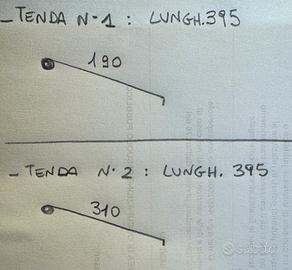 - TENDA N°1 : LUNGH.395
190
- TENDA N°2 : LUNGH. 395
310
subito.it